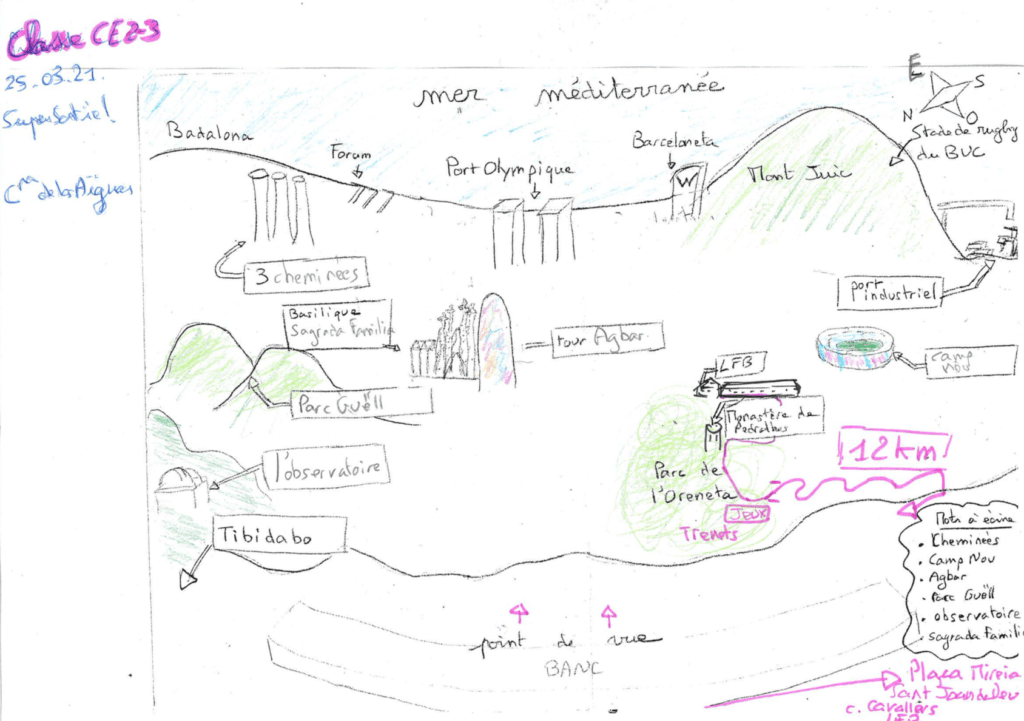 Classe CE2-3
25.03.21.
C^ra de las Aïgues
E
S
N
O
mer méditerranée
Badalona
Forum
Port Olympique
Barceloneta
W
Mont Juic
Stade de rugby
du BUC
3 cheminées
port
industriel
Basilique
Sagrada Familia
tour Agbar
camp
nou
Parc Guëll
LFB
Monastère de
Pedralbes
12 km
l'observatoire
Parc de
l'Oreneta
JEUX
Tibidabo
Mots à écrire
• Cheminées
• Camp Nou
• Agbar
• Parc Guëll
• observatoire
• sagrada familia
point de vue
BANC
Plaça Mireia
Sant Joan de Deu
c. Cavallers